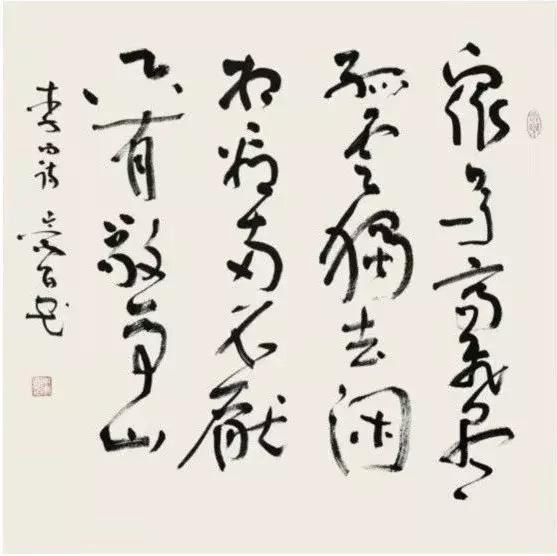 眾鳥高飛盡
孤雲獨去閑
相看兩不厭
只有敬亭山
李白詩 書